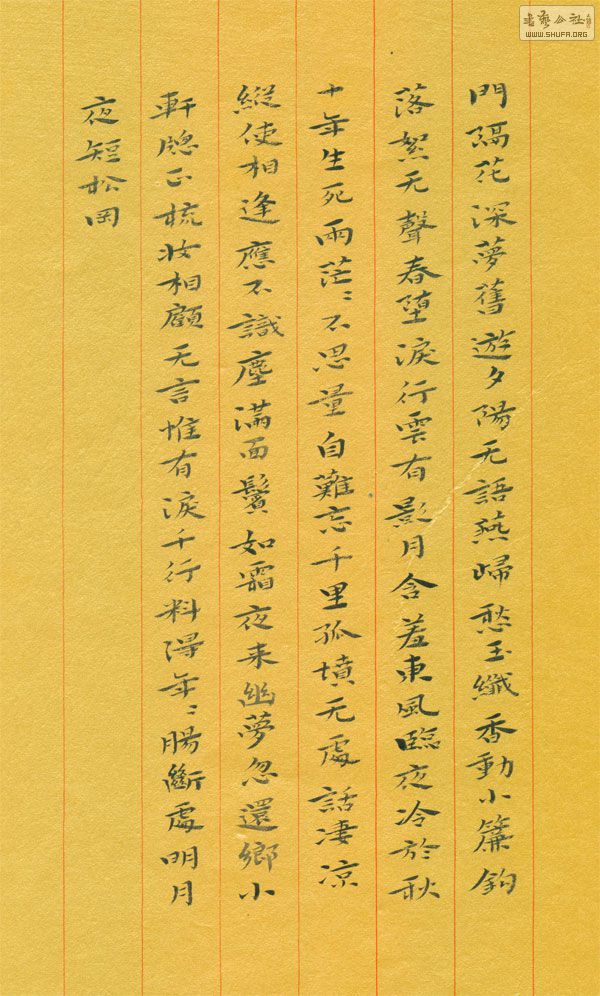 門隔花深夢舊遊夕陽无語燕歸愁玉纖香動小簾鉤
落絮无聲春墮淚行雲有影月含羞東風臨夜冷於秋
十年生死兩茫〻不思量自難忘千里孤墳无處話凄涼
縱使相逢應不識塵滿面鬢如霜夜来幽夢忽還鄉小
軒牕正梳妝相顧无言惟有淚千行料得年〻腸斷處明月
夜短松岡
书艺公社
WWW.SHUFA.ORG